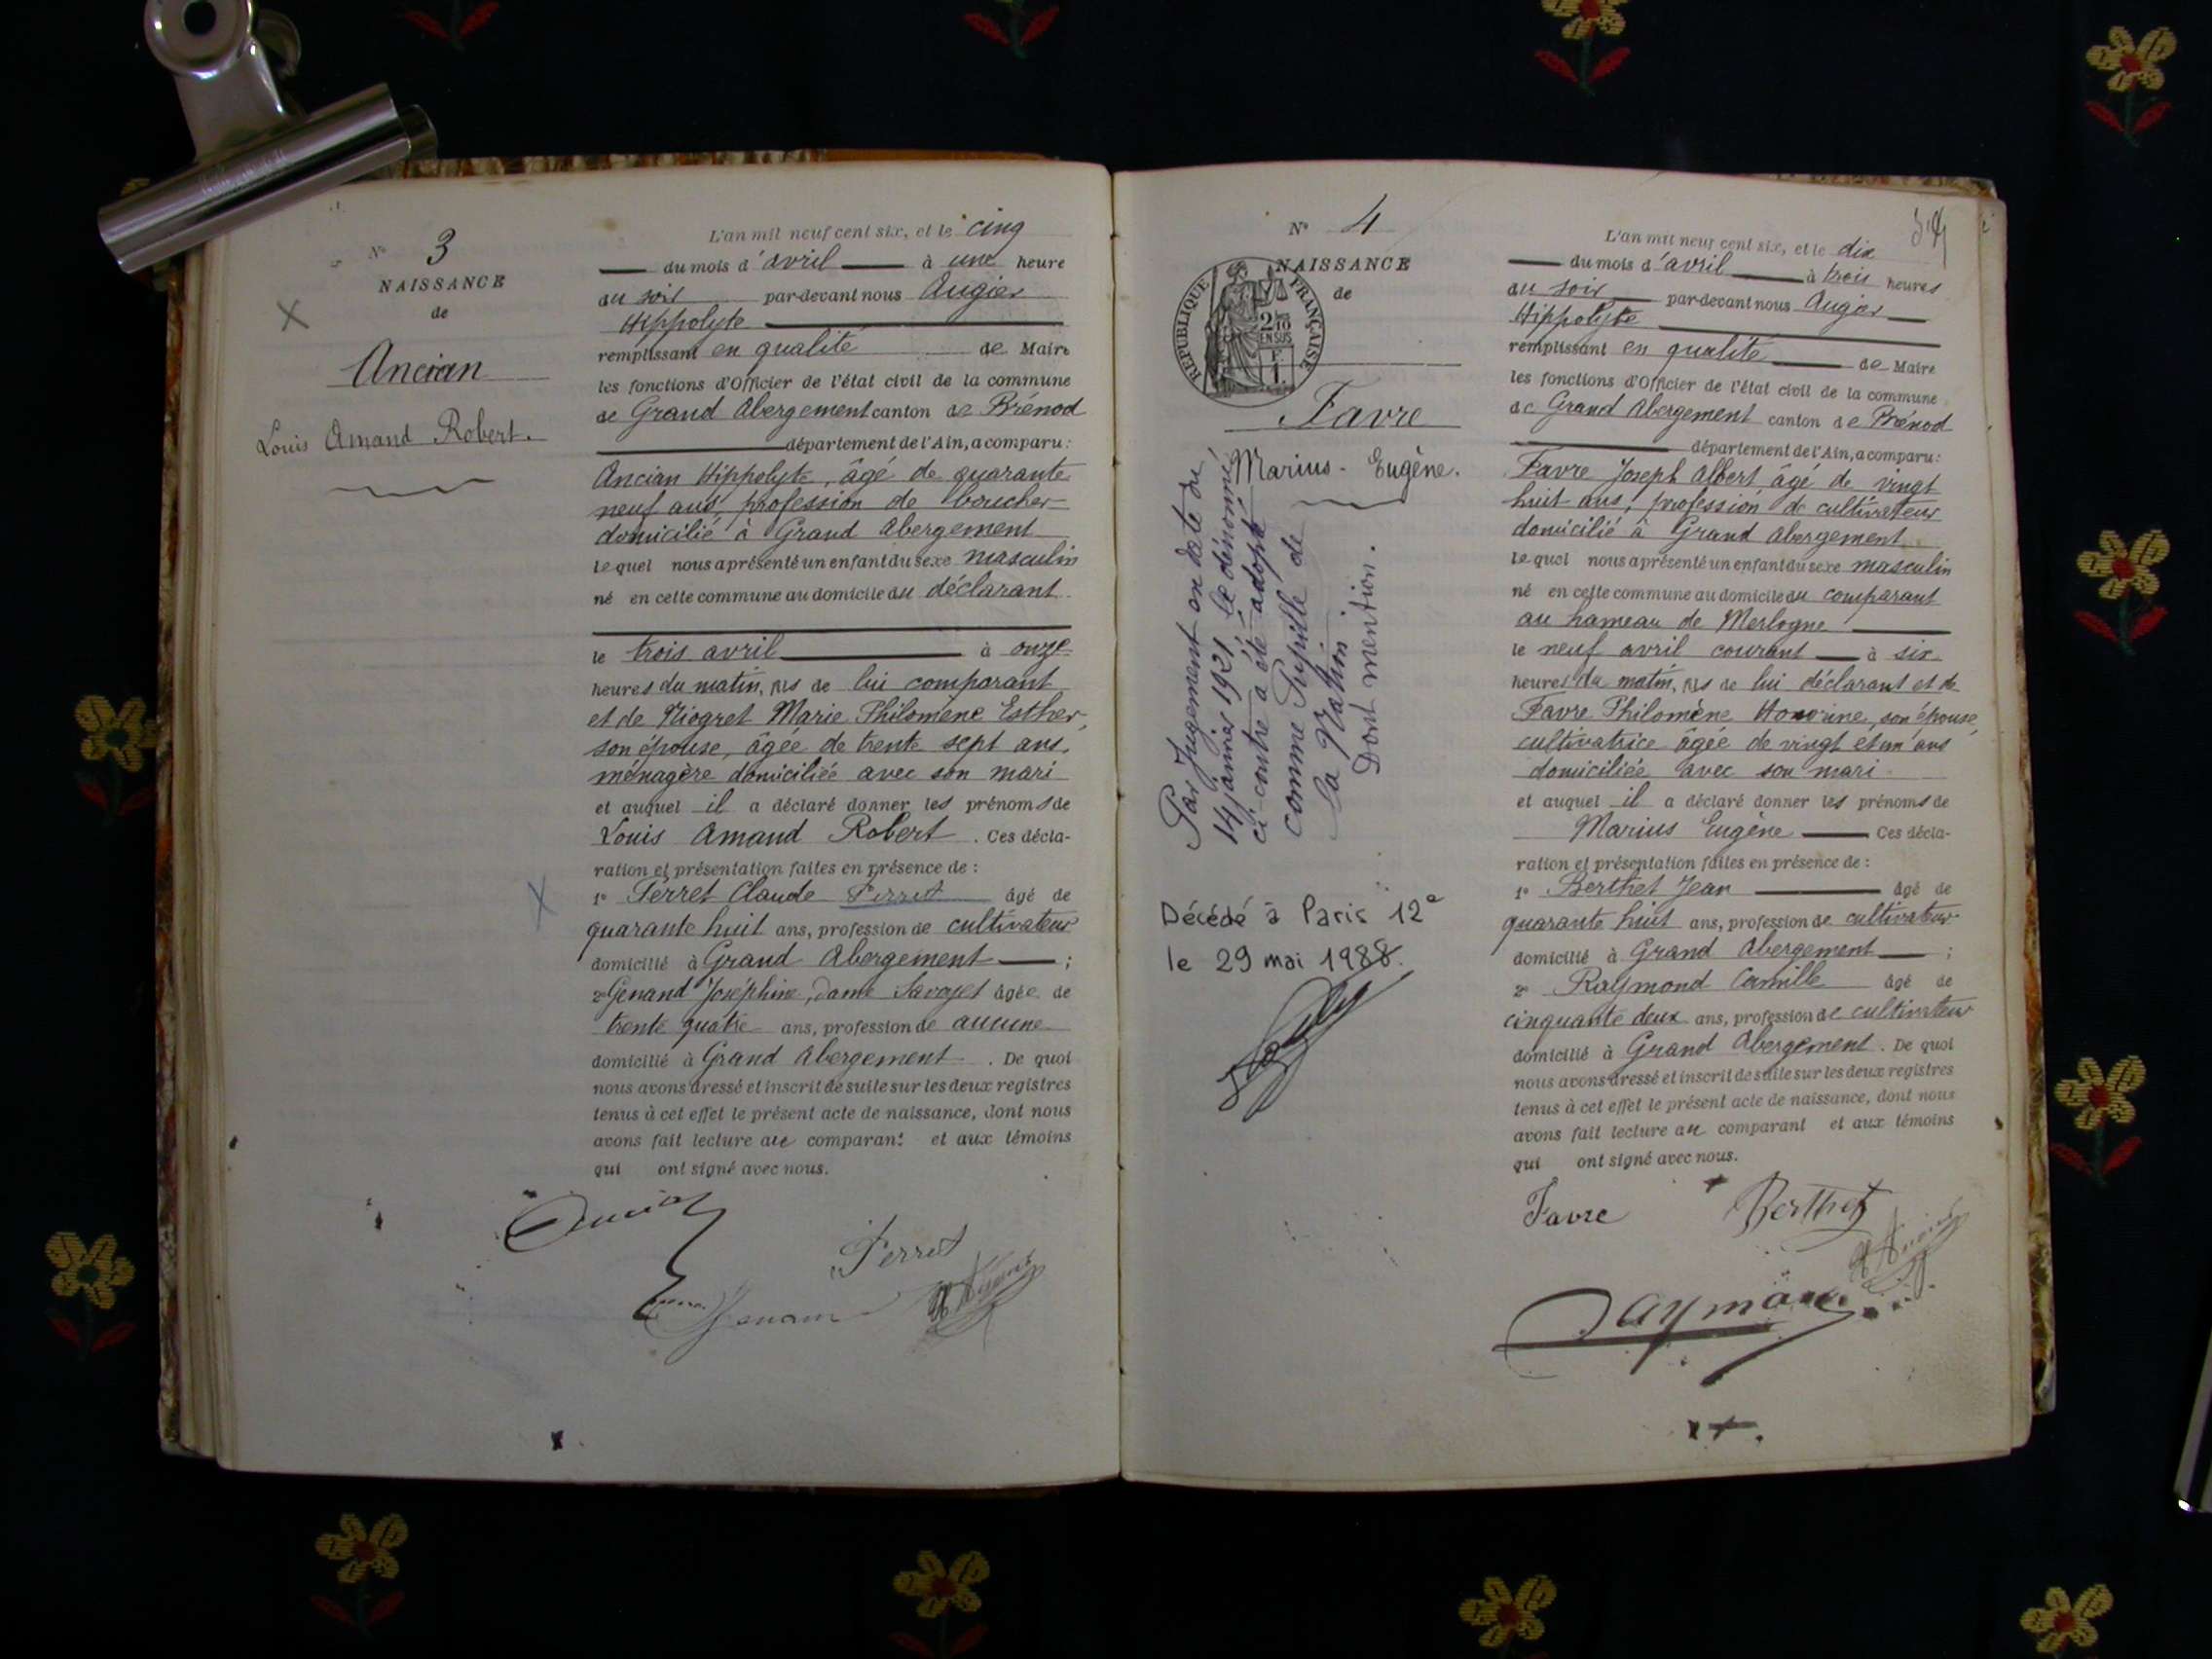 N° 3
NAISSANCE
de
Ancian
Louis Amand Robert.
L'an mil neuf cent six, et le cinq
du mois d'avril à une heure
du soir par-devant nous Augier
Hippolyte
remplissant en qualité de Maire
les fonctions d'Officier de l'état civil de la commune
de Grand Abergement canton de Brénod
département de l'Ain, a comparu :
Ancian Hippolyte, âgé de quarante
neuf ans, profession de boucher
domicilié à Grand Abergement
lequel nous a présenté un enfant du sexe masculin
né en cette commune au domicile du déclarant
le trois avril à onze
heures du matin, fils de lui comparant
et de Niogret Marie Philomène Esther,
son épouse, âgée de trente sept ans,
ménagère domiciliée avec son mari
et auquel il a déclaré donner les prénoms de
Louis Amand Robert. Ces décla-
ration et présentation faites en présence de :
1° Perret Claude Perret âgé de
quarante huit ans, profession de cultivateur
domicilié à Grand Abergement ;
2° Genand Joséphine, dame Savoyet âgée de
trente quatre ans, profession de aucune
domicilié à Grand Abergement. De quoi
nous avons dressé et inscrit de suite sur les deux registres
tenus à cet effet le présent acte de naissance, dont nous
avons fait lecture au comparant et aux témoins
qui ont signé avec nous.
Ancian
Perret
Genand
N° 4
NAISSANCE
de
RÉPUBLIQUE FRANÇAISE
2/10
EN SUS
F.
1.
Favre
Marius-Eugène.
Par Jugement en date du
14 janvier 1921 le dénommé
ci-contre a été adopté
comme Pupille de
la Nation.
Dont mention.
Décédé à Paris 12e
le 29 mai 1988.
L'an mil neuf cent six, et le dix
du mois d'avril à trois heures
du soir par-devant nous Augier
Hippolyte
remplissant en qualité de Maire
les fonctions d'Officier de l'état civil de la commune
de Grand Abergement canton de Brénod
département de l'Ain, a comparu :
Favre Joseph Albert âgé de vingt
huit ans, profession de cultivateur
domicilié à Grand Abergement
lequel nous a présenté un enfant du sexe masculin
né en cette commune au domicile du comparant
au hameau de Merlogne
le neuf avril courant à six
heures du matin, fils de lui déclarant et de
Favre Philomène Honorine, son épouse,
cultivatrice âgée de vingt et un ans
domiciliée avec son mari
et auquel il a déclaré donner les prénoms de
Marius Eugène Ces décla-
ration et présentation faites en présence de :
1° Berthet Jean âgé de
quarante huit ans, profession de cultivateur
domicilié à Grand Abergement ;
2° Raymond Camille âgé de
cinquante deux ans, profession de cultivateur
domicilié à Grand Abergement. De quoi
nous avons dressé et inscrit de suite sur les deux registres
tenus à cet effet le présent acte de naissance, dont nous
avons fait lecture au comparant et aux témoins
qui ont signé avec nous.
Favre
Berthet
Raymond